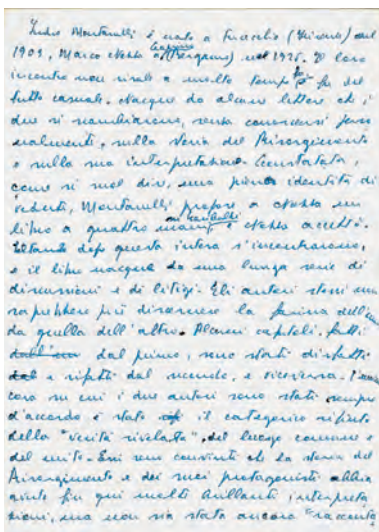 Indro Montanelli è nato a Fucecchio (Firenze) nel
1909, Marco Nozza a (Bergamo) nel 1926. Il loro
incontro non risale a molto tempo fa e fu del
tutto casuale. Nacque da alcune lettere che i
due si scambiarono, senza conoscersi perso
nalmente, sulla storia del Risorgimento
e sulla sua interpretazione. Constatata,
come si suol dire, una piena identità di
vedute, Montanelli propose a Nozza un
libro a quattro mani e Nozza accettò.
Soltanto dopo questa intesa s'incontrarono,
e il libro nacque da una lunga serie di
discussioni e di litigi. Gli autori stessi non
saprebbero più discernere la farina dell'uno
da quella dell'altro. Alcuni capitoli, fatti
dal primo, sono stati disfatti
e rifatti dal secondo, e viceversa. L'unica
cosa su cui i due autori sono stati sempre
d'accordo è stato il categorico rifiuto
della "verità rivelata", del luogo comune e
del mito. Essi sono convinti che la storia del
Risorgimento e dei suoi protagonisti abbia
avuto fin qui molti brillanti interpreta
zioni, ma non sia stata ancora "racconta